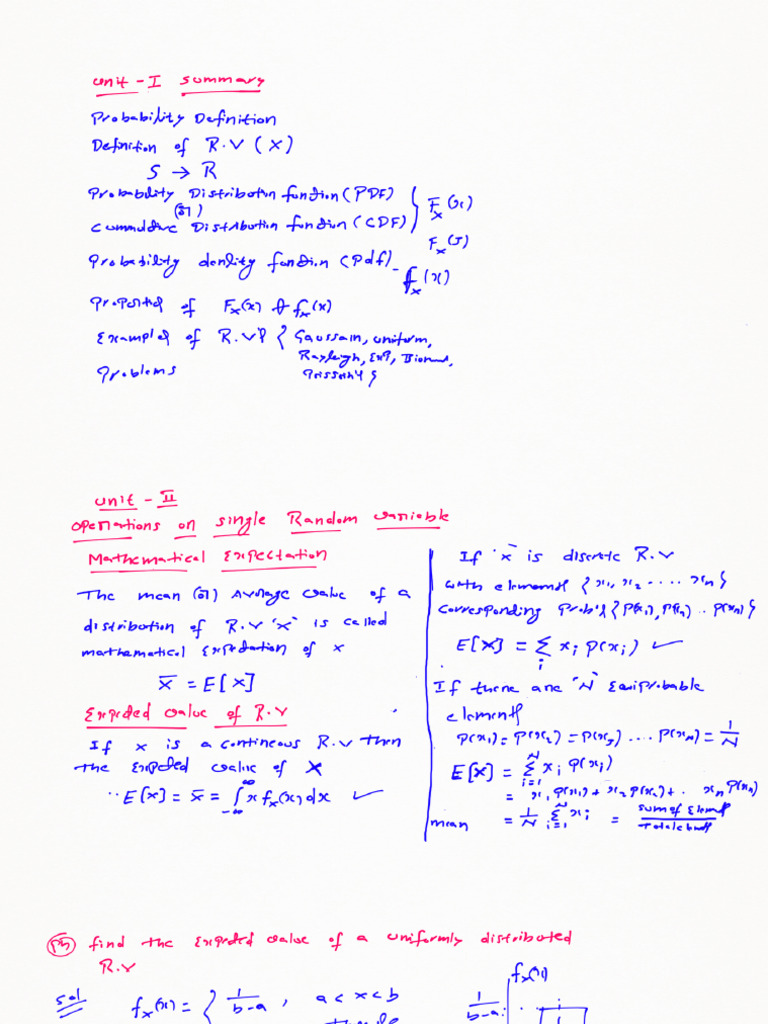 Unit - I Summary
Probability Definition
Definition of R.V (X)
S → R
Probability Distribution function (PDF)
(or)
Cummulative Distribution function (CDF) } F_X(x)
F_X(x)
Probability density function (Pdf) - f_X(x)
Properties of F_X(x) & f_X(x)
Examples of R.V's { Gaussain, uniform,
Rayleigh, Exp, Binomial,
Poisson's }
Problems
Unit - II
Operations on single Random variable
Mathematical Expectation
The mean (or) Average value of a
distribution of R.V 'X' is called
mathematical Expectation of X
X̄ = E[X]
Expected value of R.V
If X is a contineous R.V then
the Expected value of X
∵ E[X] = X̄ = ∫_{-∞}^{∞} x f_X(x) dx ✓
If 'X' is discrete R.V
with elements { x1, x2 ..... xn }
corresponding Prob's { P(x1), P(x2) .. P(xn) }
E[X] = Σ_i xi P(xi) ✓
If there are 'N' Equiprobable
elements
P(x1) = P(x2) = P(x3) .... P(xN) = 1/N
E[X] = Σ_{i=1}^{N} xi P(xi)
= x1 P(x1) + x2 P(x2) + . xn P(xn)
mean = 1/N Σ_{i=1}^{N} xi = sum of Elements /
(Pb) find the Expected value of a uniformly distributed
R.V
Sol f_X(x) = { 1/(b-a) , a < x < b
f_X(x)
1/(b-a)